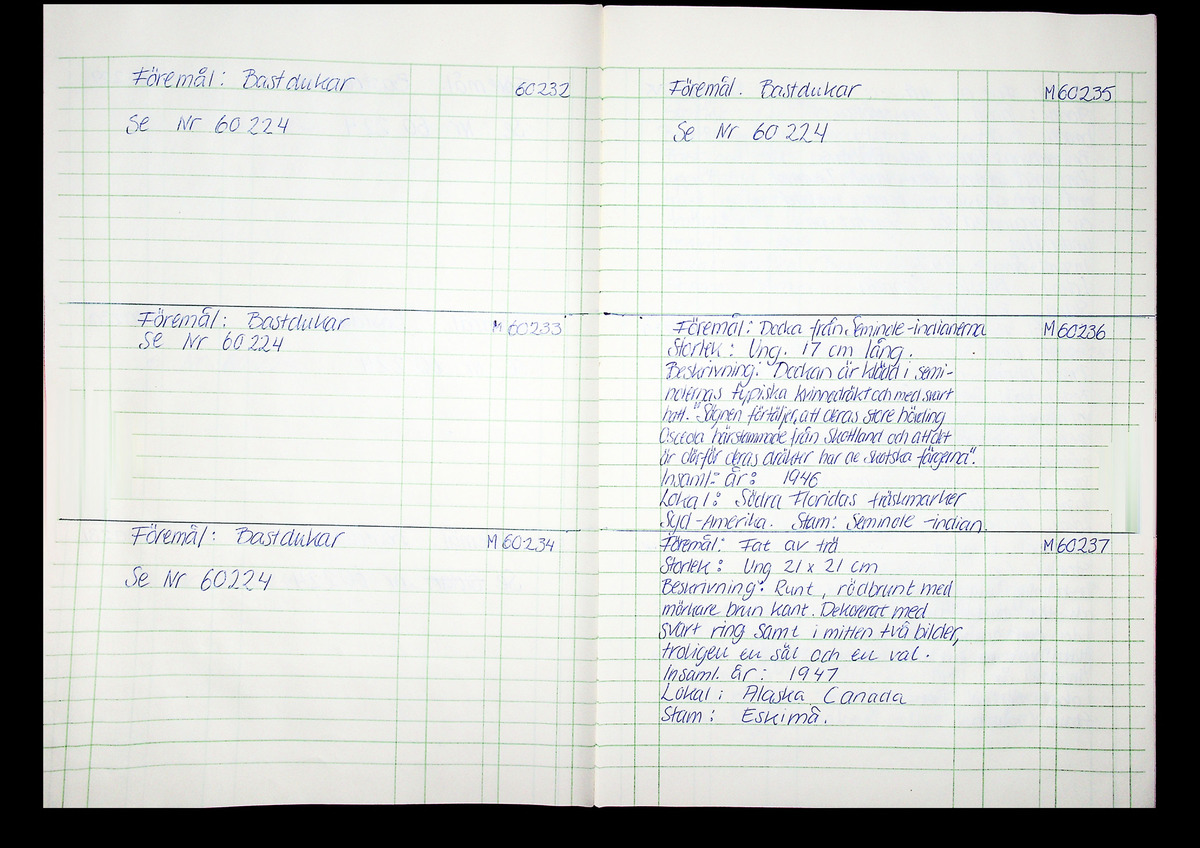 Föremål: Bastdukar 60232
Se Nr 60224
Föremål: Bastdukar M 60233
Se Nr 60224
Föremål: Bastdukar M 60234
Se Nr 60224
Föremål. Bastdukar M 60235
Se Nr 60224
Föremål: Docka från Seminole-indianerna M 60236
Storlek: Ung. 17 cm lång.
Beskrivning: Dockan är klädd i semi-
nolernas typiska kvinnodräkt och med svart
hatt. "Sägnen förtäljer, att deras store hövding
Osceola härstammade från Skottland och att det
är därför deras dräkter har de skotska färgerna".
Insaml: år: 1946
Lokal: Södra Floridas träskmarker
Syd-Amerika. Stam: Seminole-indian.
Föremål: Fat av trä M 60237
Storlek: Ung 21 x 21 cm
Beskrivning: Runt, rödbrunt med
mörkare brun kant. Dekorerat med
svart ring samt i mitten två bilder,
troligen en säl och en val.
Insaml. år: 1947
Lokal: Alaska Canada
Stam: Eskimå.